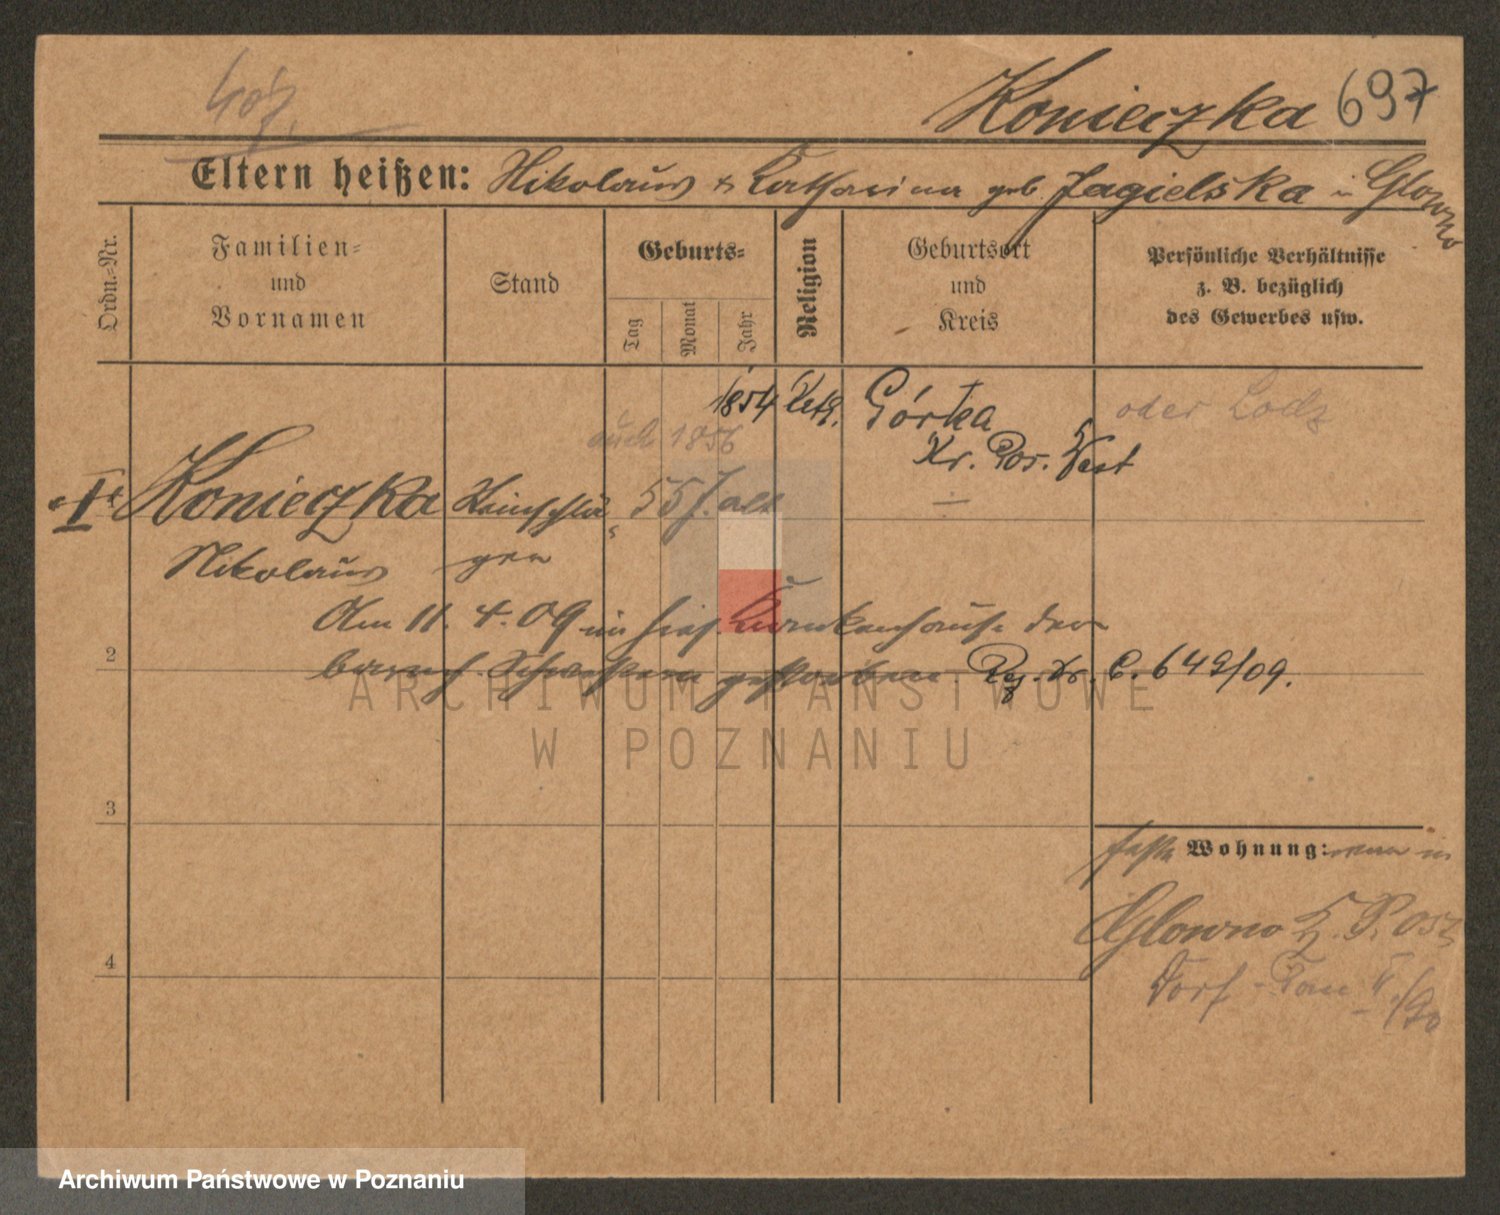 Konieczka 697
Eltern heißen: Nikolaus & Katharina geb. Jagielska in Glowno
Ordn.-Nr.
Familien-
und
Vornamen
Stand
Geburts-
Tag
Monat
Jahr
Religion
Geburtsort
und
Kreis
Persönliche Verhältnisse
z. B. bezüglich
des Gewerbes usw.
1854 Kath. Górka oder Lodz
auch 1856
Kr. Pos. West
I Konieczka Steinschlä- 55 J. alt
Nikolaus ger
Am 11. 4. 09 im hies. Krankenhause der
barmh. Schwestern gestorben Reg. Nr. C. 649/09.
2
3
feste Wohnung: in
Glowno
4
Dorf
ARCHIWUM PAŃSTWOWE
W POZNANIU
Archiwum Państwowe w Poznaniu